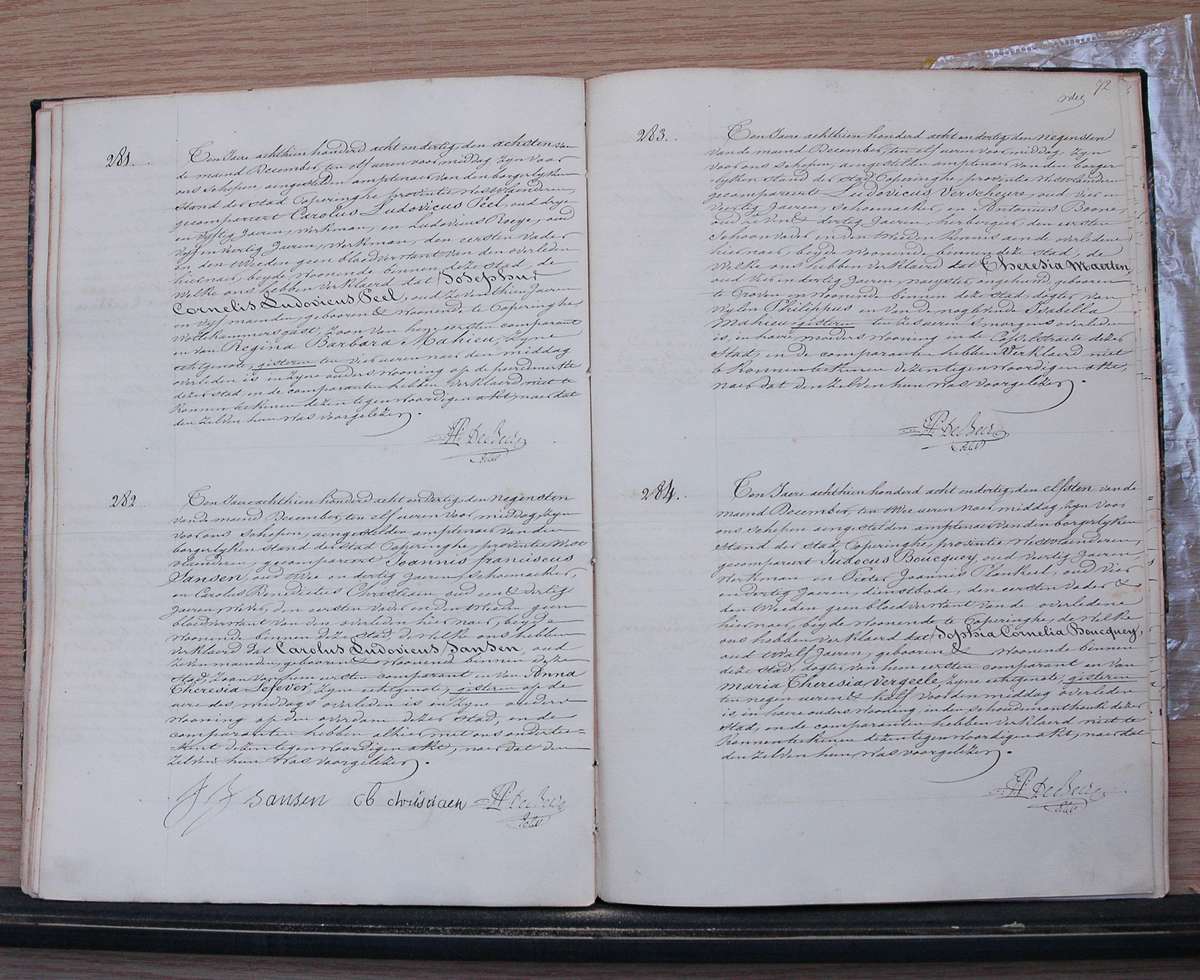 281.
Ten Jaere achthien honderd acht en dertig den achsten van
de maend December, ten elf ueren voor middag zyn voor
ons Schepen aengestelden amptenaer van den borgerlyken
Stand der stad Poperinghe, provintie Westvlaenderen,
gecompareert Carolus Ludovicus Peel, oud dry
en vyftig Jaeren, Werkman, en Ludovicus Roeye, oud
vyf en veertig Jaeren, Werkman, den eersten vader
en den tweeden geen bloedverwant van den overleden
hiernaer, beyde woonende binnen deze stad, de
Welke ons hebben verklaerd dat Josephus
Cornelis Ludovicus Peel, oud zeventhien Jaeren
en vyf maenden, gebooren & woonende te Poperinghe
Wollekammersgast, zoon van hem eersten comparant
en van Regina Barbara Mahieu, zyne
echtgenote, gisteren te vier ueren naer den middag
overleden is in zyne ouders wooning op de peerdmarkt
dezer stad en de comparanten hebben verklaerd niet te
konnen teekenen dezen tegenwoordigen akt, naer dat
den zelven hun was voorgelezen.
282.
Ten Jaere achthien honderd acht en dertig, den negensten
van de maend December, ten elf ueren voor middag, zyn
voor ons Schepen, aengestelden amptenaer van den
borgerlyken Stand der stad Poperinghe, provintie West
vlaenderen, gecompareert Joannis franciscus
Jansen, oud twee en dertig Jaeren, Schoemaeker,
en Carolus Benedictus Christiaen, oud een & dertig
Jaeren, wever, den eersten vader en den tweeden geen
bloedverwant van den overleden hier naer, beyde
woonende binnen deze stad, de welke ons hebben
verklaerd dat Carolus Ludovicus Jansen, oud
zeven maenden, gebooren & woonend binnen deze
stad, zoon van hem eersten comparant en van Anna
Theresia Lefever, zyne echtgenote, gisteren op de
uere des middags overleden is in zyne ouders
wooning op den overdam dezer stad, en de
comparanten hebben alhier met ons ondertee-
kent dezen tegenwoordigen akt, naer dat den
zelven hun was voorgelezen.
Jansen
283.
Ten Jaere achthien honderd acht en dertig den negensten
van de maend December, ten elf ueren voor middag, zyn
voor ons Schepen, aengestelden amptenaer van den borger
lyken stand der stad Poperinghe, provintie Westvlaenderen
gecompareert Ludovicus Verscheure, oud vier en
veertig Jaeren, schoenmaeker, en Antonius Boone,
oud & dertig Jaeren, herberger, den eersten
Schoonvader en den tweeden kennis aen de overledene
hiernaer, beyde woonende binnen deze stad, de
Welke ons hebben verklaerd dat Theresia Maerten,
oud en dertig Jaeren, naeyster ongehuwd, gebooren
te Proven en woonende binnen deze stad, dogter van
wylen Philippus en van de nog levende Isabella
Mahieu, gisteren ten ueren 's morgens overleden
is, in haere moeders wooning in de dezer
Stad, en de comparanten hebben verklaerd niet
te konnen teekenen dezen tegenwoordigen akt,
naer dat den zelven hun was voorgelezen.
284.
Ten Jaere achthien honderd acht en dertig, den elfsten van de
maend December, ten twee ueren naer middag zyn voor
ons Schepen aengestelden amptenaer van den borgerlyken
Stand der stad Poperinghe, provintie Westvlaenderen,
gecompareert Judocus Boucquey, oud veertig Jaeren
Werkman en Pieter Joannis Plankeel, oud vier
en dertig Jaeren, dienstbode, den eersten vader &
den tweeden geen bloedverwant van de overledene
hiernaer, beyde woonende te Poperinghe, de welke
ons hebben verklaerd dat Sophia Cornelia Boucquey,
oud twalf Jaeren, gebooren & woonende binnen
deze stad, dogter van hem eersten comparant en van
Maria Theresia Vergeele, zyne echtgenote, gisteren
ten negen ueren & half voor den middag overleden
is in haere ouders wooning, in den dezer
stad, en de comparanten hebben verklaerd niet te
konnen teekenen dezen tegenwoordigen akt, naer dat
den zelven hun was voorgelezen.